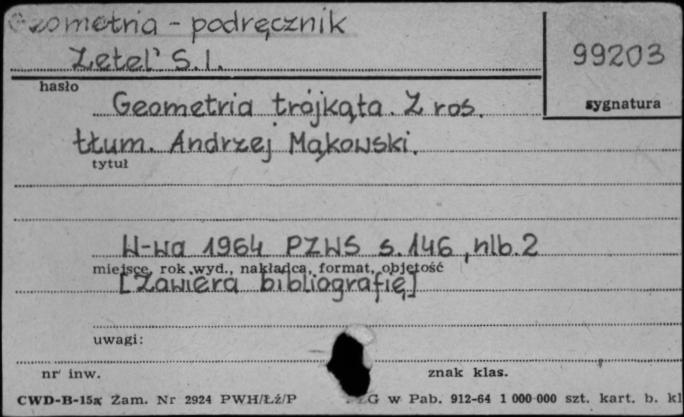 Geometria - podręcznik
Zetel' S.I.
99203
hasło
sygnatura
Geometria trójkąta. Z ros.
tłum. Andrzej Mąkowski.
tytuł
W-wa 1964 PZWS s.146, nlb.2
miejsce, rok wyd., nakładca, format, objętość
[Zawiera bibliografię]
uwagi:
nr inw.
znak klas.
CWD-B-15a Zam. Nr 2924 PWH/Łź/P
G w Pab. 912-64 1 000 000 szt. kart. b. kl